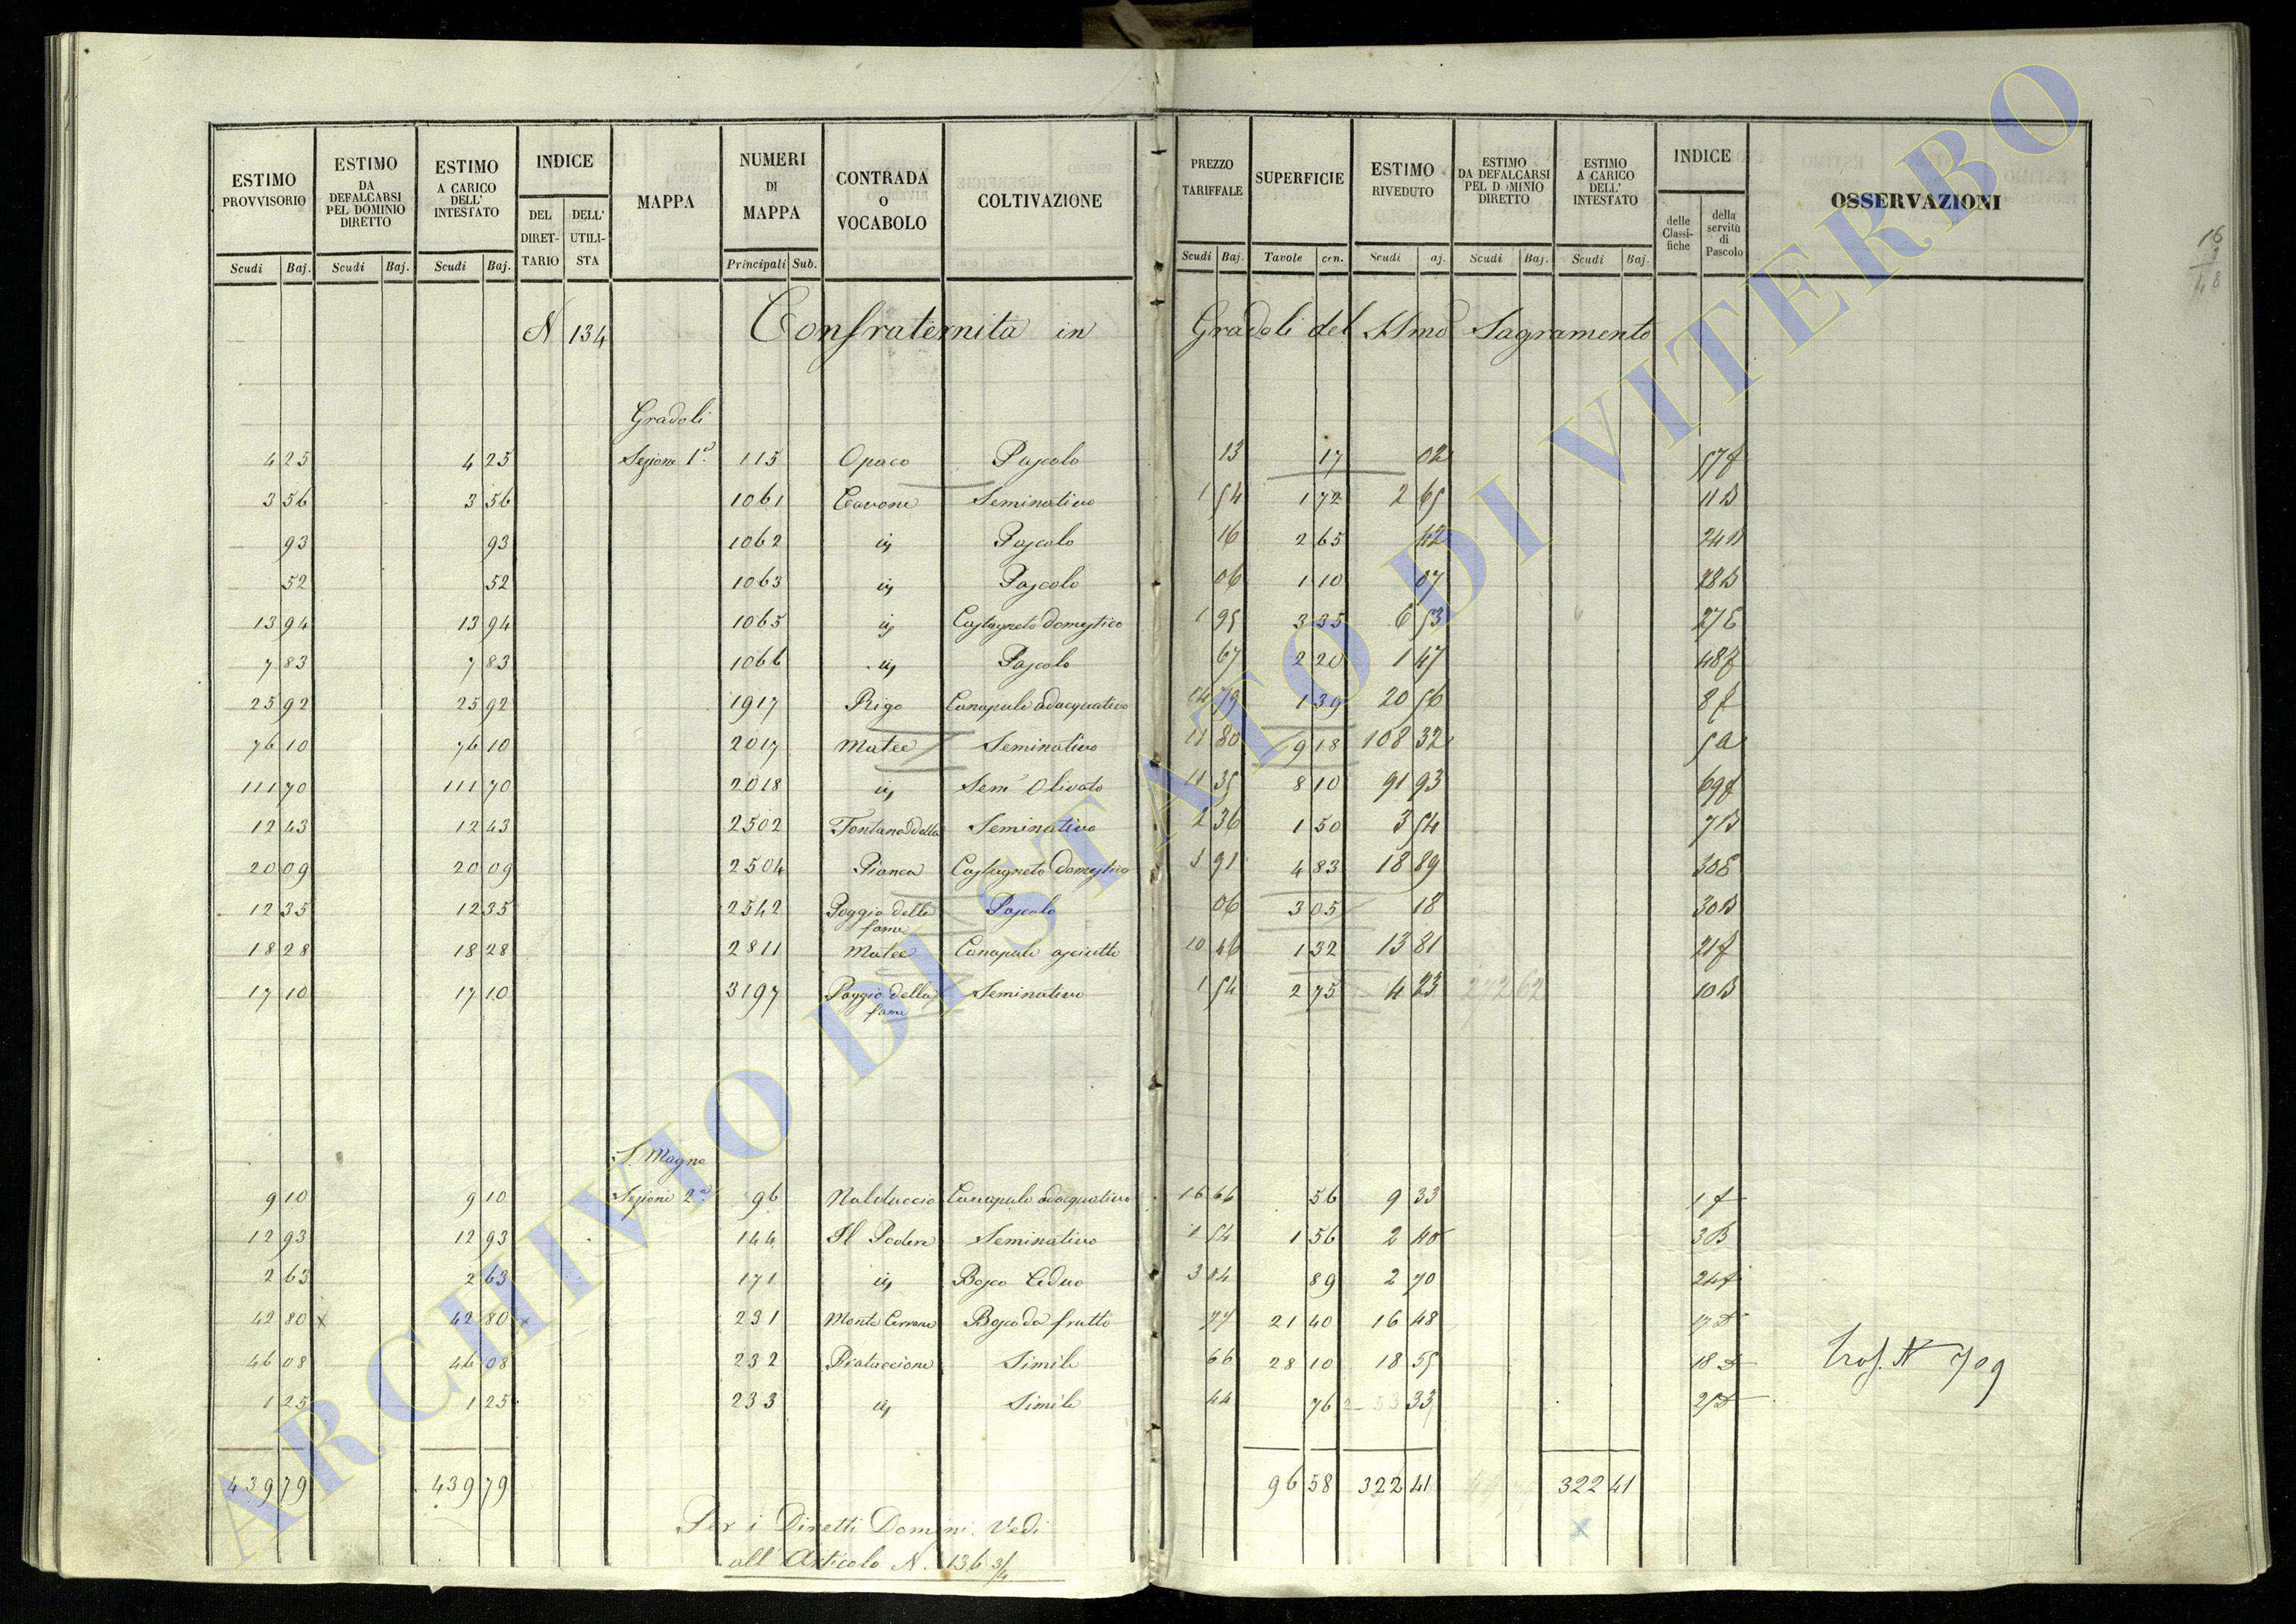 ESTIMO PROVVISORIO | ESTIMO DA DEFALCARSI PEL DOMINIO DIRETTO | ESTIMO A CARICO DELL' INTESTATO | INDICE | MAPPA | NUMERI DI MAPPA | CONTRADA O VOCABOLO | COLTIVAZIONE | PREZZO TARIFFALE | SUPERFICIE | ESTIMO RIVEDUTO | ESTIMO DA DEFALCARSI PEL DOMINIO DIRETTO | ESTIMO A CARICO DELL' INTESTATO | INDICE | OSSERVAZIONI
DEL DIRET-TARIO | DELL' UTILI-STA | delle Classi-fiche | della servitù di Pascolo
Scudi Baj. | Scudi Baj. | Scudi Baj. | Principali Sub. | Scudi Baj. | Tavole cen. | Scudi aj. | Scudi Baj. | Scudi Baj.
16
3
48
N 134 Confraternita in Gradoli del SSmo Sagramento
Gradoli
4 25 | 4 25 | Sezione 1a | 115 | Opaco | Pascolo | 13 | 17 | 02 | 57f
3 56 | 3 56 | 1061 | Cavone | Seminativo | 1 54 | 1 72 | 2 65 | 11B
93 | 93 | 1062 | in | Pascolo | 16 | 2 65 | 42 | 24B
52 | 52 | 1063 | in | Pascolo | 06 | 1 10 | 07 | 28B
13 94 | 13 94 | 1065 | in | Castagneto domestico | 1 95 | 3 35 | 6 53 | 27E
7 83 | 7 83 | 1066 | in | Pascolo | 67 | 2 20 | 1 47 | 48f
25 92 | 25 92 | 1917 | Rigo | Canapule adacquativo | 14 79 | 1 39 | 20 56 | 8f
76 10 | 76 10 | 2017 | Matee | Seminativo | 11 80 | 9 18 | 108 32 | 5a
111 70 | 111 70 | 2018 | in | Sem Olivato | 11 35 | 8 10 | 91 93 | 69f
12 43 | 12 43 | 2502 | Fontana della | Seminativo | 2 36 | 1 50 | 3 54 | 7B
20 09 | 20 09 | 2504 | Pianca | Castagneto Domestico | 3 91 | 4 83 | 18 89 | 30E
12 35 | 12 35 | 2542 | Poggio della fame | Pascolo | 06 | 3 05 | 18 | 30B
18 28 | 18 28 | 2811 | Matee | Canapule asciutto | 10 46 | 1 32 | 13 81 | 21f
17 10 | 17 10 | 3197 | Poggio della fame | Seminativo | 1 54 | 2 75 | 4 23 | 272 62 | 10B
S. Magno
9 10 | 9 10 | Sezione 2a | 96 | Nalduccio | Canapule adacquativo | 16 66 | 56 | 9 33 | 1f
12 93 | 12 93 | 144 | Il Podere | Seminativo | 1 54 | 1 56 | 2 40 | 3B
2 63 | 2 63 | 171 | in | Bosco Ceduo | 3 04 | 89 | 2 70 | 24f
42 80 x | 42 80 x | 231 | Monte Cerrone | Bosco da frutto | 77 | 21 40 | 16 48 | 17D
46 08 | 46 08 | 232 | Piataccione | Simile | 66 | 28 10 | 18 55 | 18D | Trasf. N 709
1 25 | 1 25 | 233 | in | Simile | 44 | 76 | 33
439 79 | 439 79 | 96 58 | 322 41 | 322 41
x
Per i Diretti Domini. Vedi
all' Articolo N. 136 3/4
ARCHIVIO DI STATO DI VITERBO